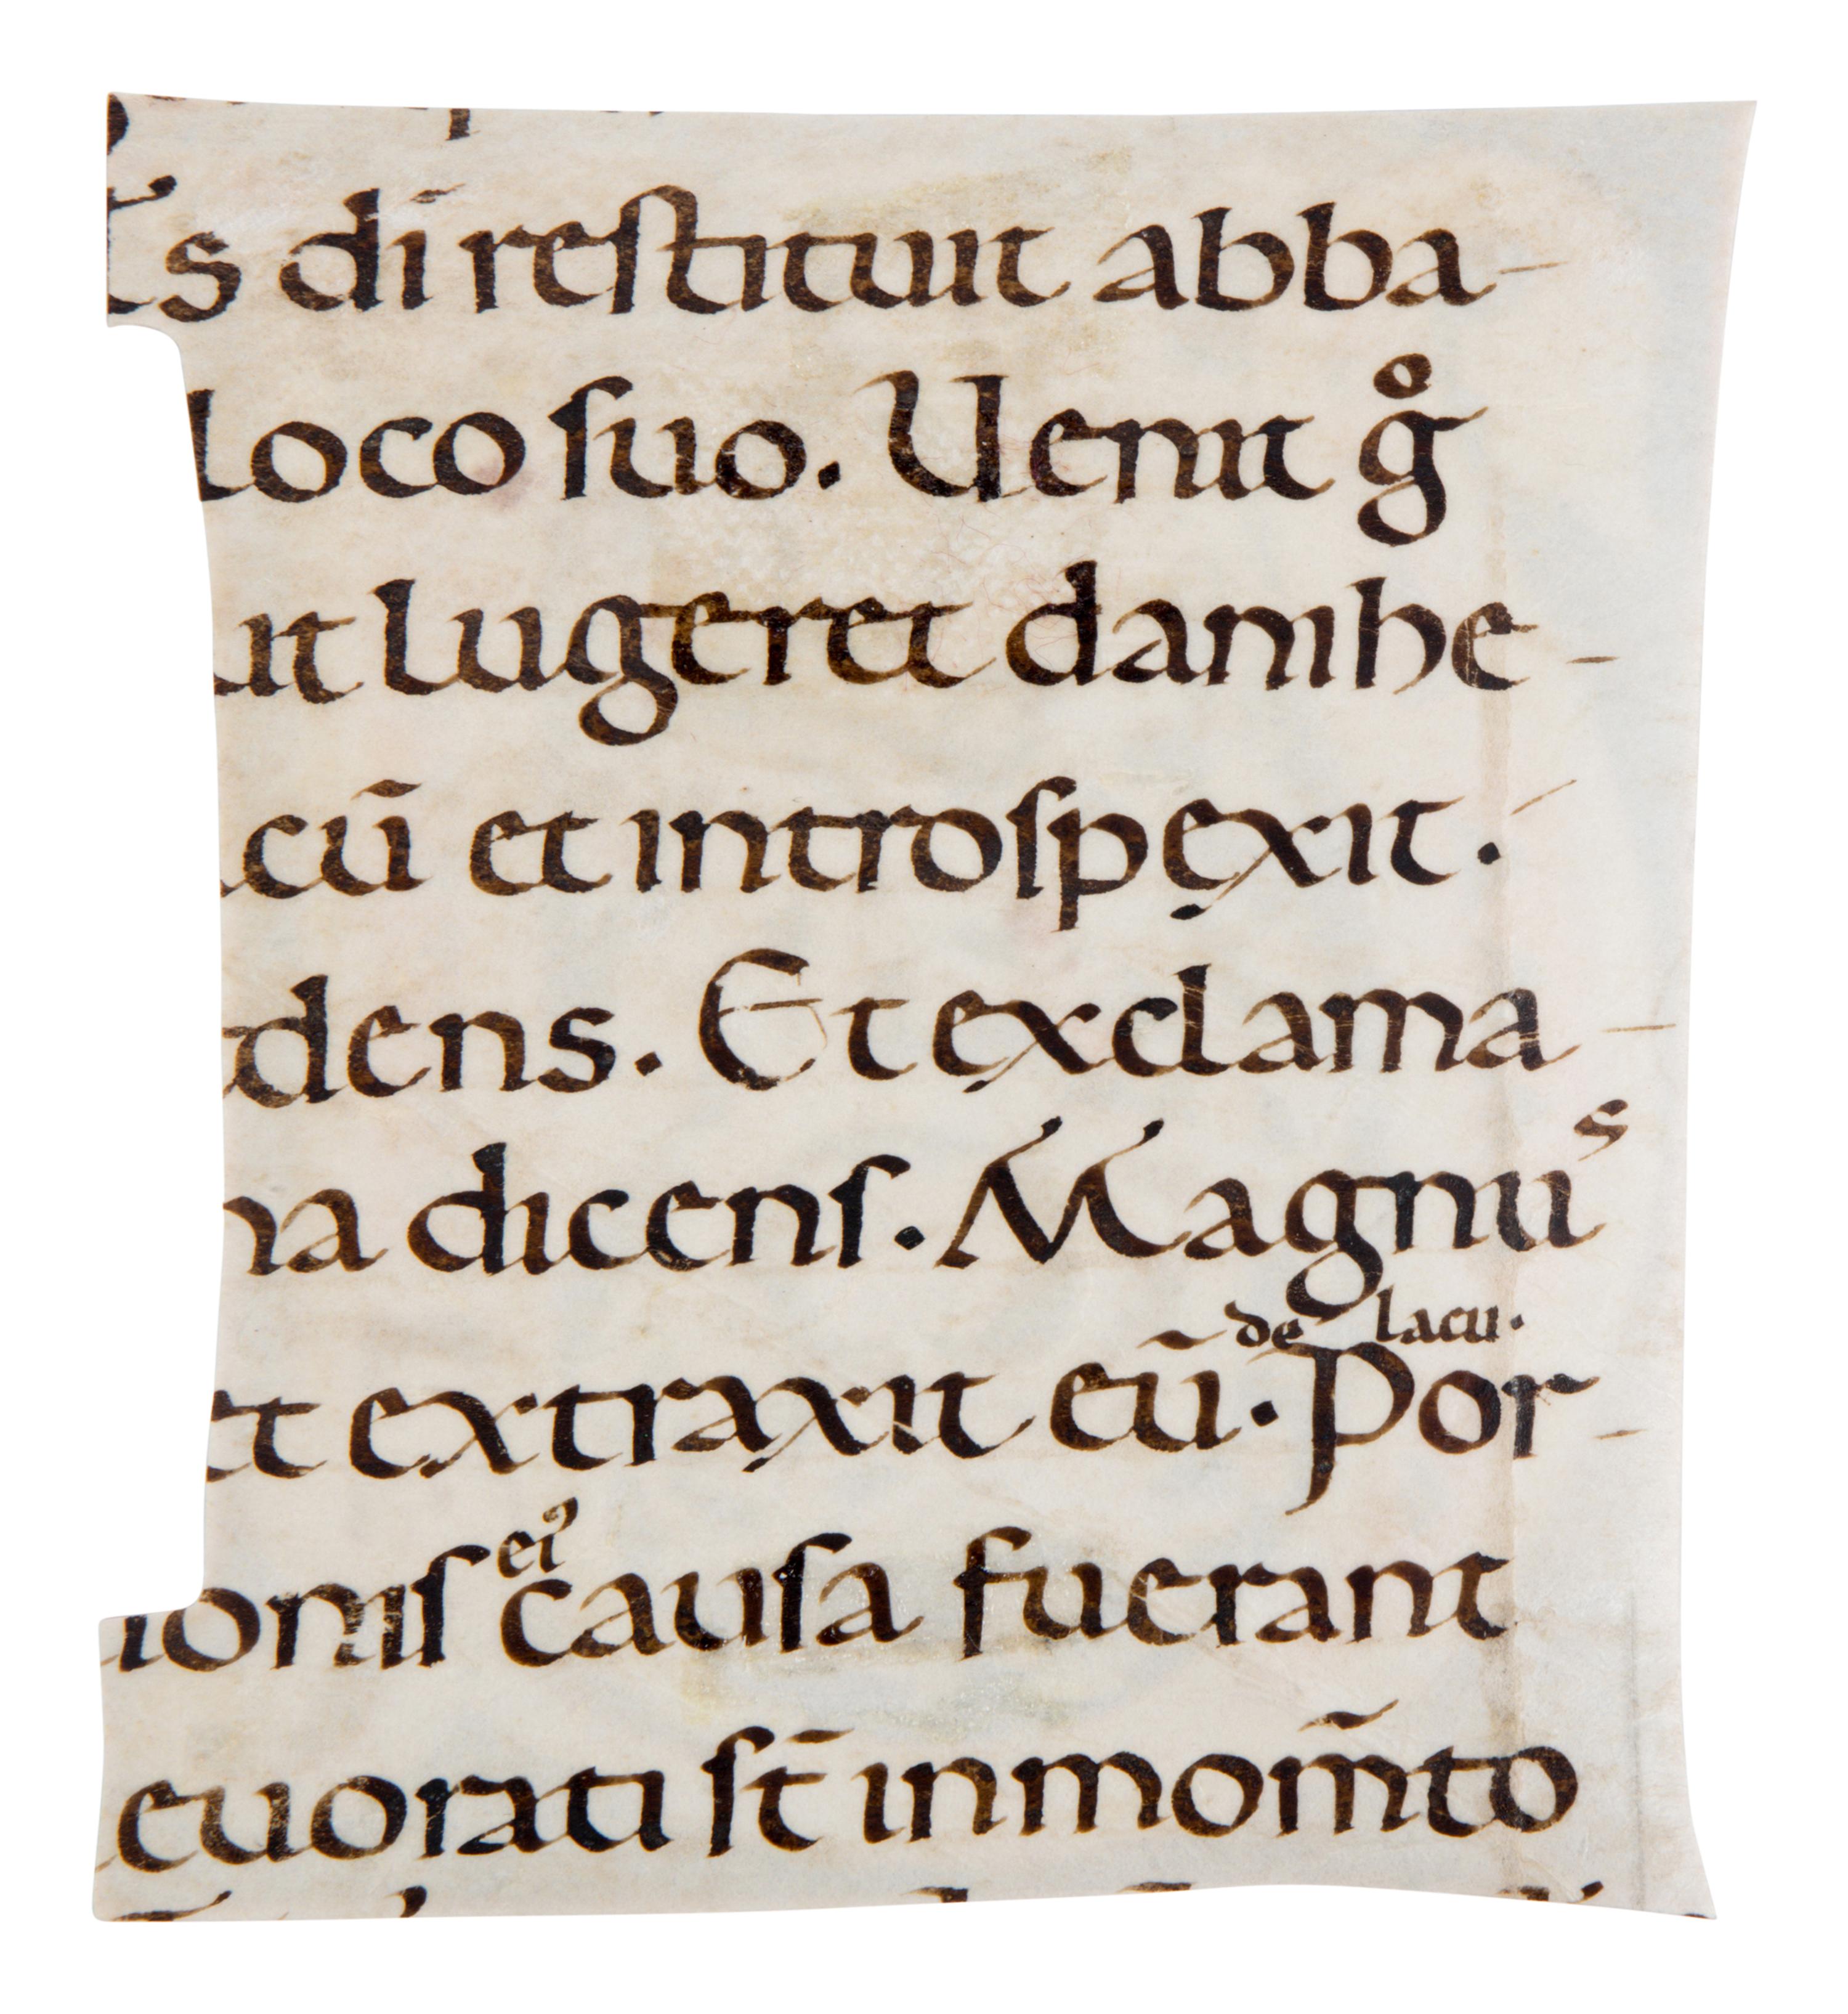 ſ di reſtituit abba-
loco ſuo. Uenit g̊
it lugeret danihe-
cū et introſpexit.
dens. Et exclama-
na dicenſ. Magnuˢ
de lacu.
et extraxit eū. Por-
ei᾽
ioniſ cauſa fuerant
euorati ſt̄ in mom̄to